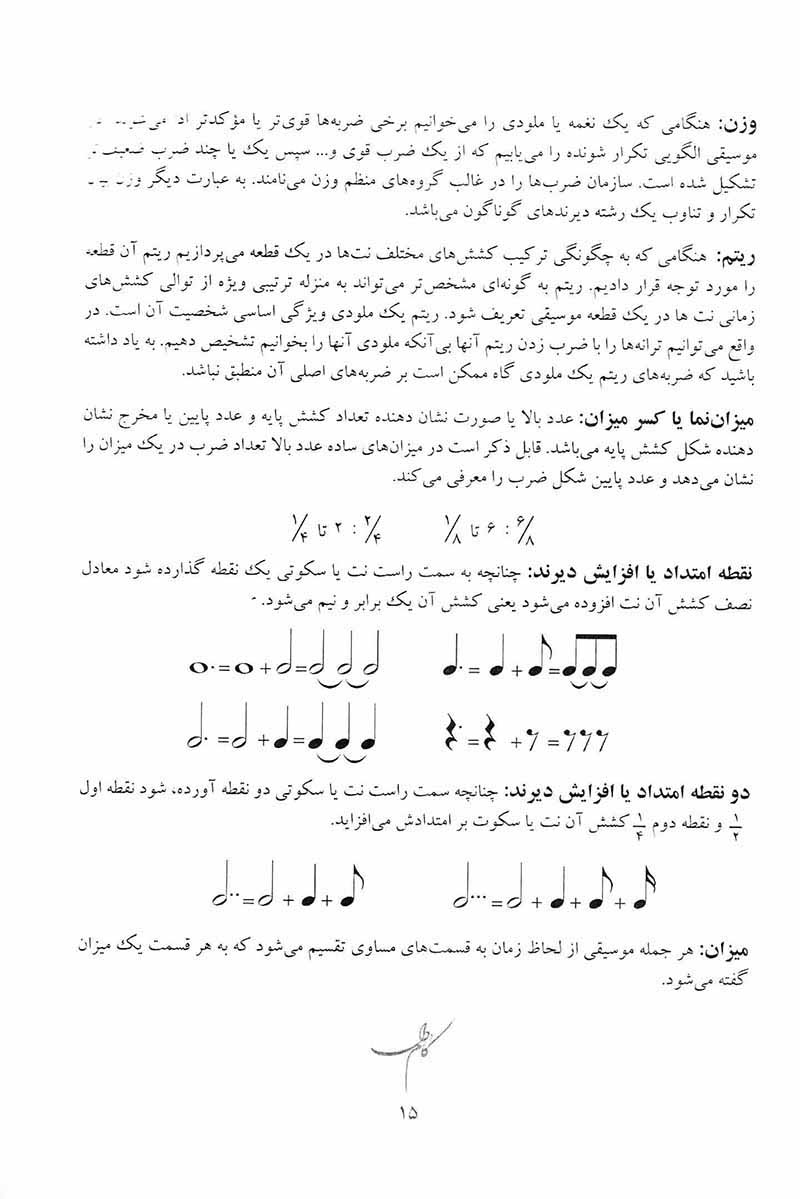 وزن: هنگامی که یک نغمه یا ملودی را می‌خوانیم برخی ضربه‌ها قوی‌تر یا مؤکدتر
موسیقی الگویی تکرار شونده را می‌یابیم که از یک ضرب قوی و... سپس یک یا چند ضرب ضعیف‌تر
تشکیل شده است. سازمان ضرب‌ها را در غالب گروه‌های منظم وزن می‌نامند. به عبارت دیگر وزن
تکرار و تناوب یک رشته دیرندهای گوناگون می‌باشد.
ریتم: هنگامی که به چگونگی ترکیب کشش‌های مختلف نت‌ها در یک قطعه می‌پردازیم ریتم آن قطعه
را مورد توجه قرار دادیم. ریتم به گونه‌ای مشخص‌تر می‌تواند به منزله ترتیبی ویژه از توالی کشش‌های
زمانی نت ها در یک قطعه موسیقی تعریف شود. ریتم یک ملودی ویژگی اساسی شخصیت آن است. در
واقع می‌توانیم ترانه‌ها را با ضرب زدن ریتم آنها بی‌آنکه ملودی آنها را بخوانیم تشخیص دهیم. به یاد داشته
باشید که ضربه‌های ریتم یک ملودی گاه ممکن است بر ضربه‌های اصلی آن منطبق نباشد.
میزان‌نما یا کسر میزان: عدد بالا یا صورت نشان دهنده تعداد کشش پایه و عدد پایین یا مخرج نشان
دهنده شکل کشش پایه می‌باشد. قابل ذکر است در میزان‌های ساده عدد بالا تعداد ضرب در یک میزان را
نشان می‌دهد و عدد پایین شکل ضرب را معرفی می‌کند.
۶/۸ : ۶ تا ۱/۸ ۲/۴ : ۲ تا ۱/۴
نقطه امتداد یا افزایش دیرند: چنانچه به سمت راست نت یا سکوتی یک نقطه گذارده شود معادل
نصف کشش آن نت افزوده می‌شود یعنی کشش آن یک برابر و نیم می‌شود.
دو نقطه امتداد یا افزایش دیرند: چنانچه سمت راست نت یا سکوتی دو نقطه آورده، شود نقطه اول
۱/۲ و نقطه دوم ۱/۴ کشش آن نت یا سکوت بر امتدادش می‌افزاید.
میزان: هر جمله موسیقی از لحاظ زمان به قسمت‌های مساوی تقسیم می‌شود که به هر قسمت یک میزان
گفته می‌شود.
۱۵